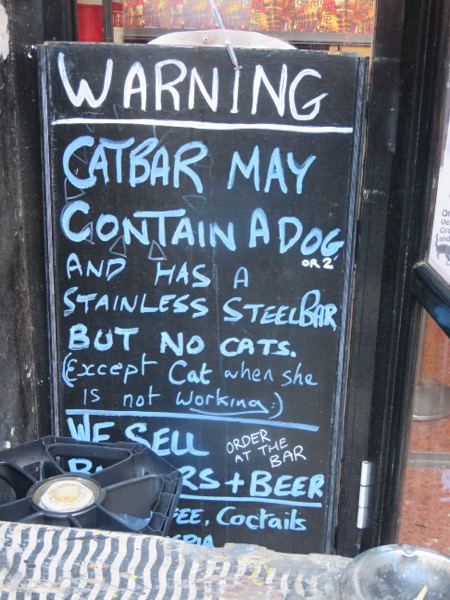 WARNING
CATBAR MAY
CONTAIN A DOG
OR 2
AND HAS A
STAINLESS STEEL BAR
BUT NO CATS.
(Except Cat when she
is not working.)
WE SELL
ORDER
AT THE
BAR
+ BEER
Coctails